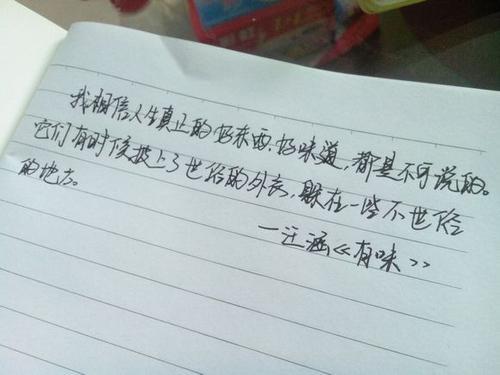 我相信人生真正的好东西、好味道，都是不可说的。
它们有时候披上了世俗的外衣，躲在一些不世俗
的地方。
—汪涵《有味》